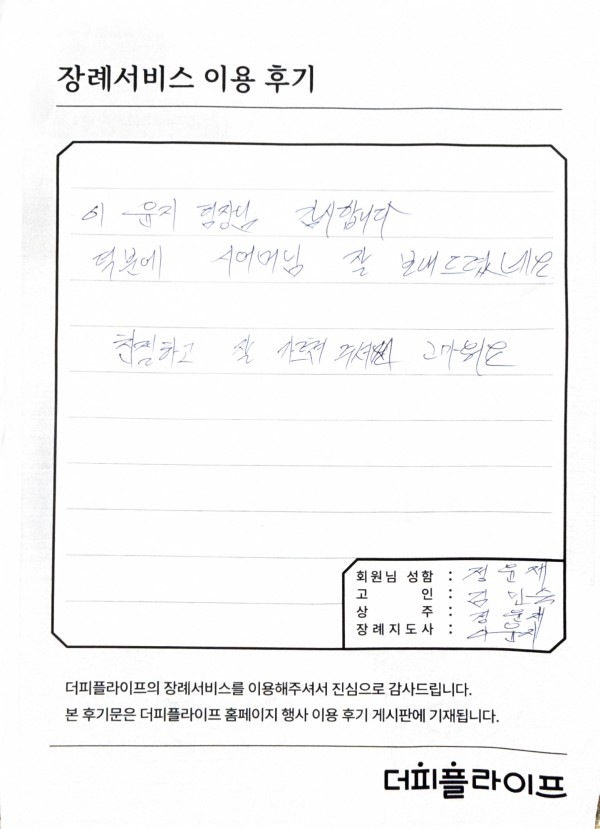 장례서비스 이용 후기
이 윤지 팀장님 감사합니다
덕분에 시어머님 잘 보내드렸네요
친절하고 잘 가르쳐 주셔서 고마워요
회원님 성함 : 정문재
고 인 : 김민숙
상 주 : 정문재
장례지도사 : 이윤지
더피플라이프의 장례서비스를 이용해주셔서 진심으로 감사드립니다.
본 후기문은 더피플라이프 홈페이지 행사 이용 후기 게시판에 기재됩니다.
더피플라이프